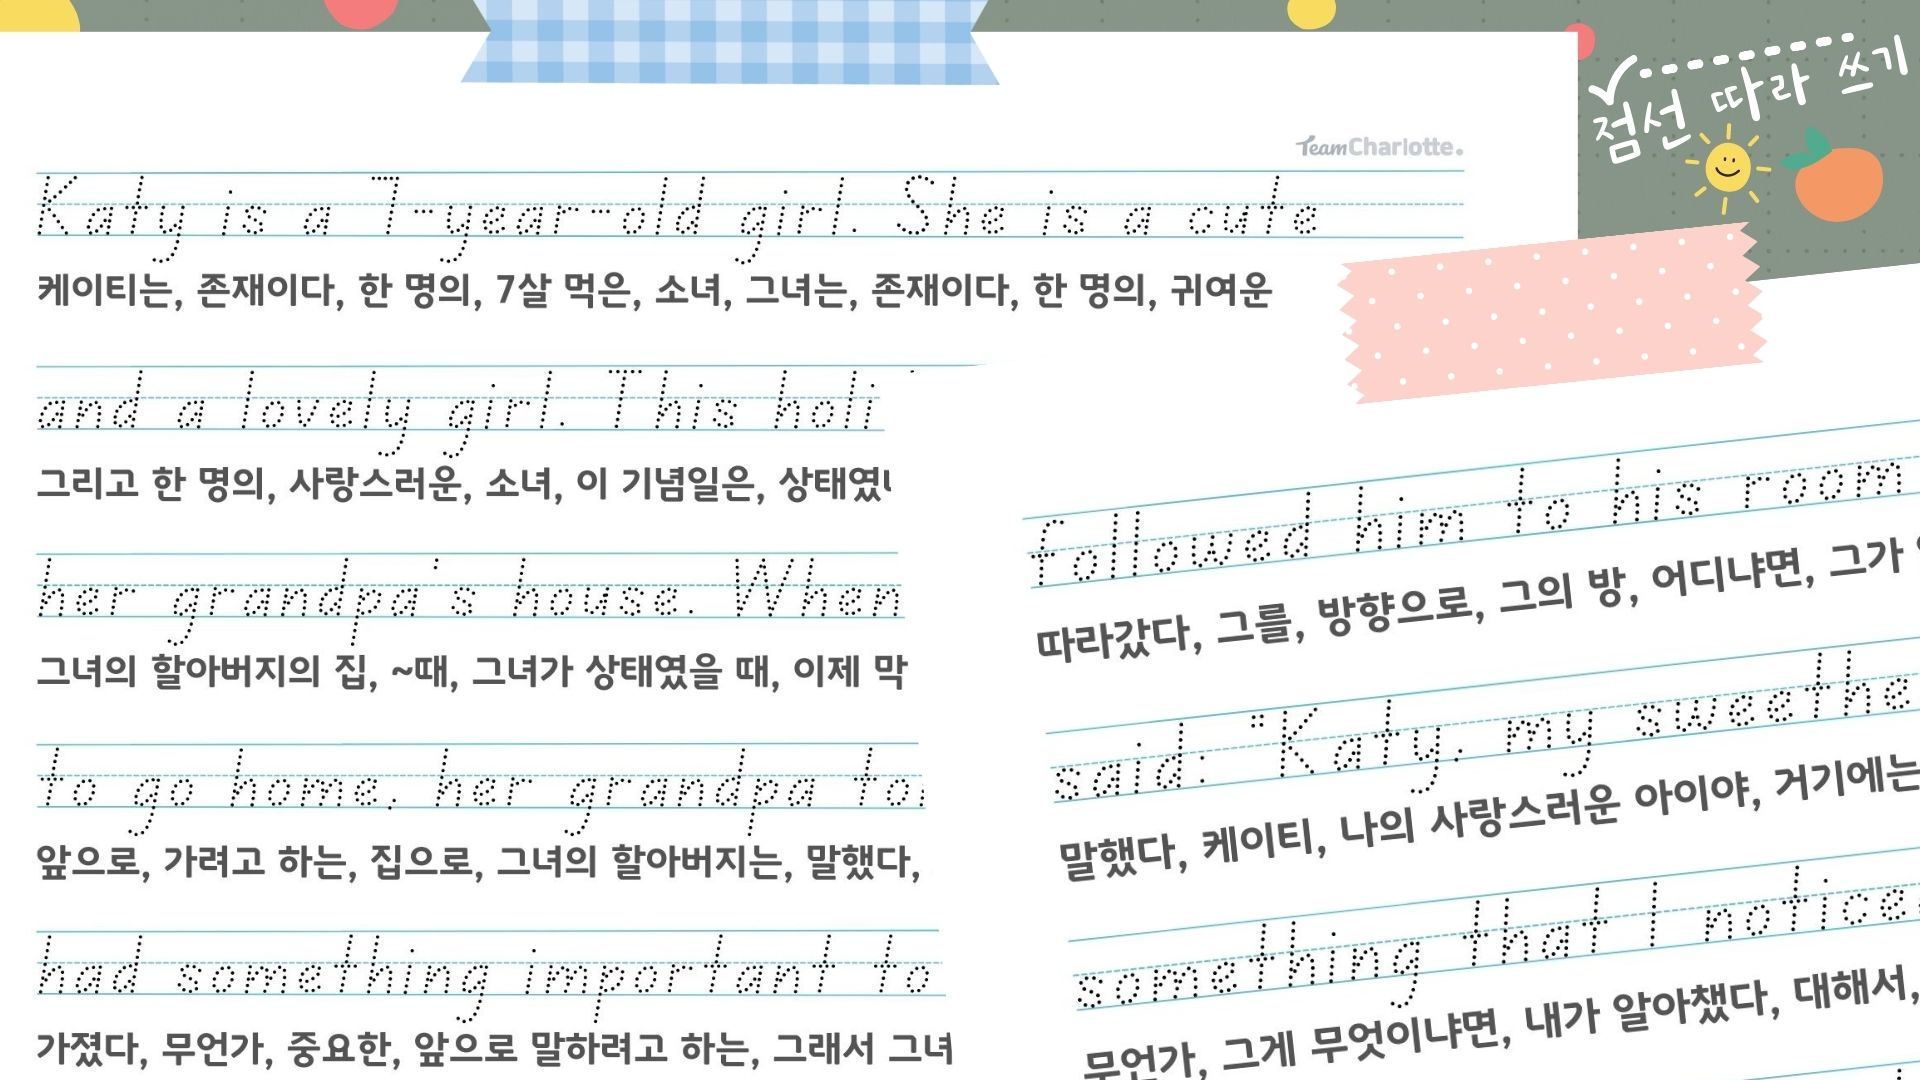 점선 따라 쓰기
TeamCharlotte.
Katy is a 7-year-old girl. She is a cute
케이티는, 존재이다, 한 명의, 7살 먹은, 소녀, 그녀는, 존재이다, 한 명의, 귀여운
and a lovely girl. This holi
그리고 한 명의, 사랑스러운, 소녀, 이 기념일은,
her grandpa's house. When
그녀의 할아버지의 집, ~때, 그녀가 상태였을 때, 이제 막
to go home, her grandpa
앞으로, 가려고 하는, 집으로, 그녀의 할아버지는, 말했다,
had something important to
가졌다, 무언가, 중요한, 앞으로 말하려고 하는, 그래서 그녀
followed him to his room
따라갔다, 그를, 방향으로, 그의 방, 어디냐면, 그가
said: "Katy, my sweethe
말했다, 케이티, 나의 사랑스러운 아이야, 거기에는
something that I notice
무언가, 그게 무엇이냐면, 내가 알아챘다, 대해서,